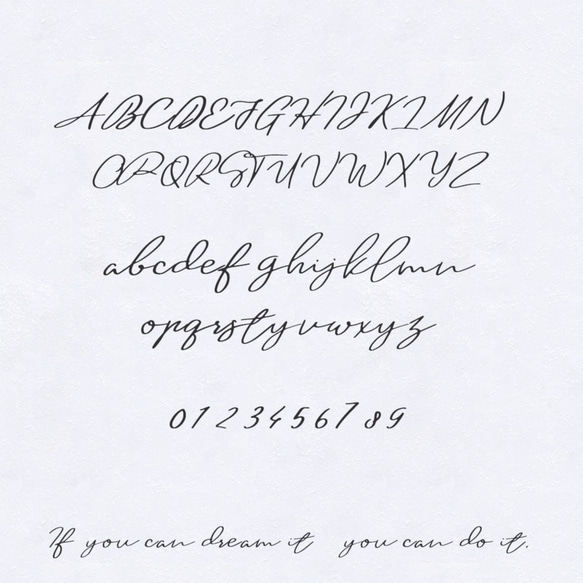 ABCDEFGHIJKLMN
OPQRSTUVWXYZ
abcdefghijklmn
opqrstyvwxyz
0123456789
If you can dream it you can do it.